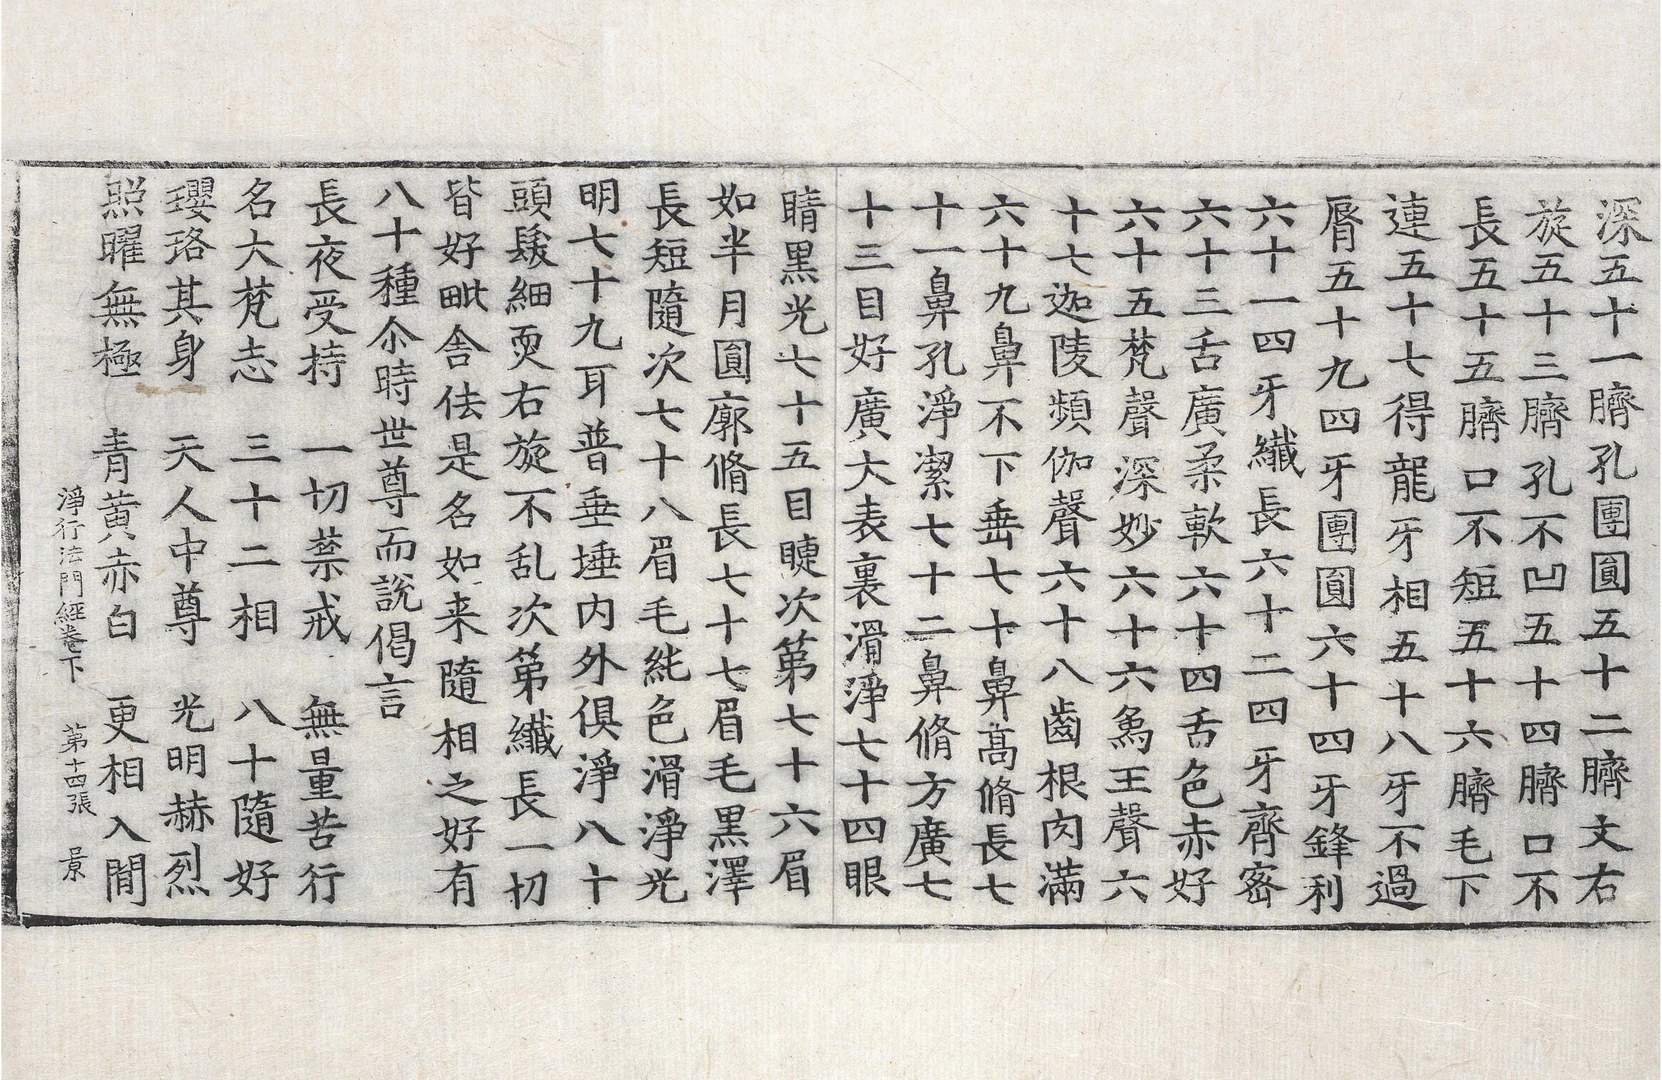 深五十一臍孔團圓五十二臍文右
旋五十三臍孔不凹五十四臍口不
長五十五臍口不短五十六臍毛下
連五十七得龍牙相五十八牙不過
脣五十九四牙團圓六十四牙鋒利
六十一四牙纖長六十二四牙齊密
六十三舌廣柔軟六十四舌色赤好
六十五梵聲深妙六十六為王聲六
十七迦陵頻伽聲六十八齒根肉滿
六十九鼻不下垂七十鼻髙脩長七
十一鼻孔淨潔七十二鼻脩方廣七
十三目好廣大表裏滑淨七十四眼
睛黒光七十五目睫次第七十六眉
如半月圓廓脩長七十七眉毛黒澤
長短隨次七十八眉毛純色滑淨光
明七十九耳普垂埵内外俱淨八十
頭髮細耎右旋不乱次第纖長一切
皆好毗舎佉是名如来隨相之好有
八十種尒時世尊而說偈言
長夜受持　一切禁戒　無量苦行
名大梵志　三十二相　八十隨好
瓔珞其身　天人中尊　光明赫烈
照曜無極　青黄赤白　更相入間
淨行法門經卷下　第十四張　景